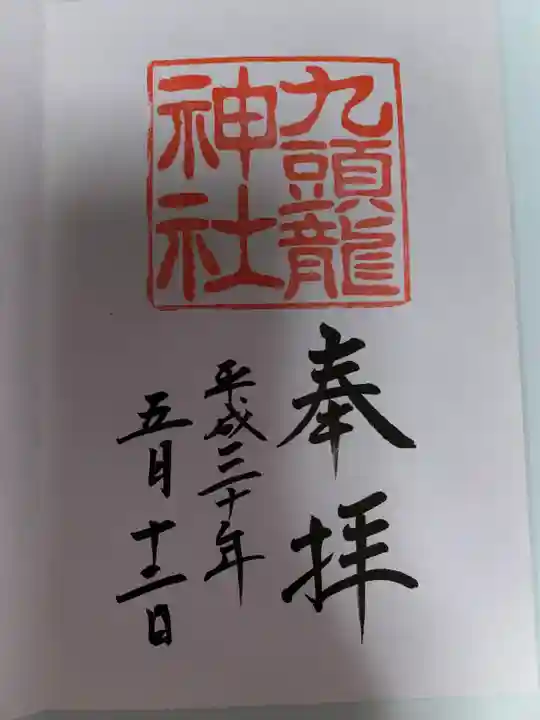 九頭龍
神社
奉拝
平成三十年
五月十二日